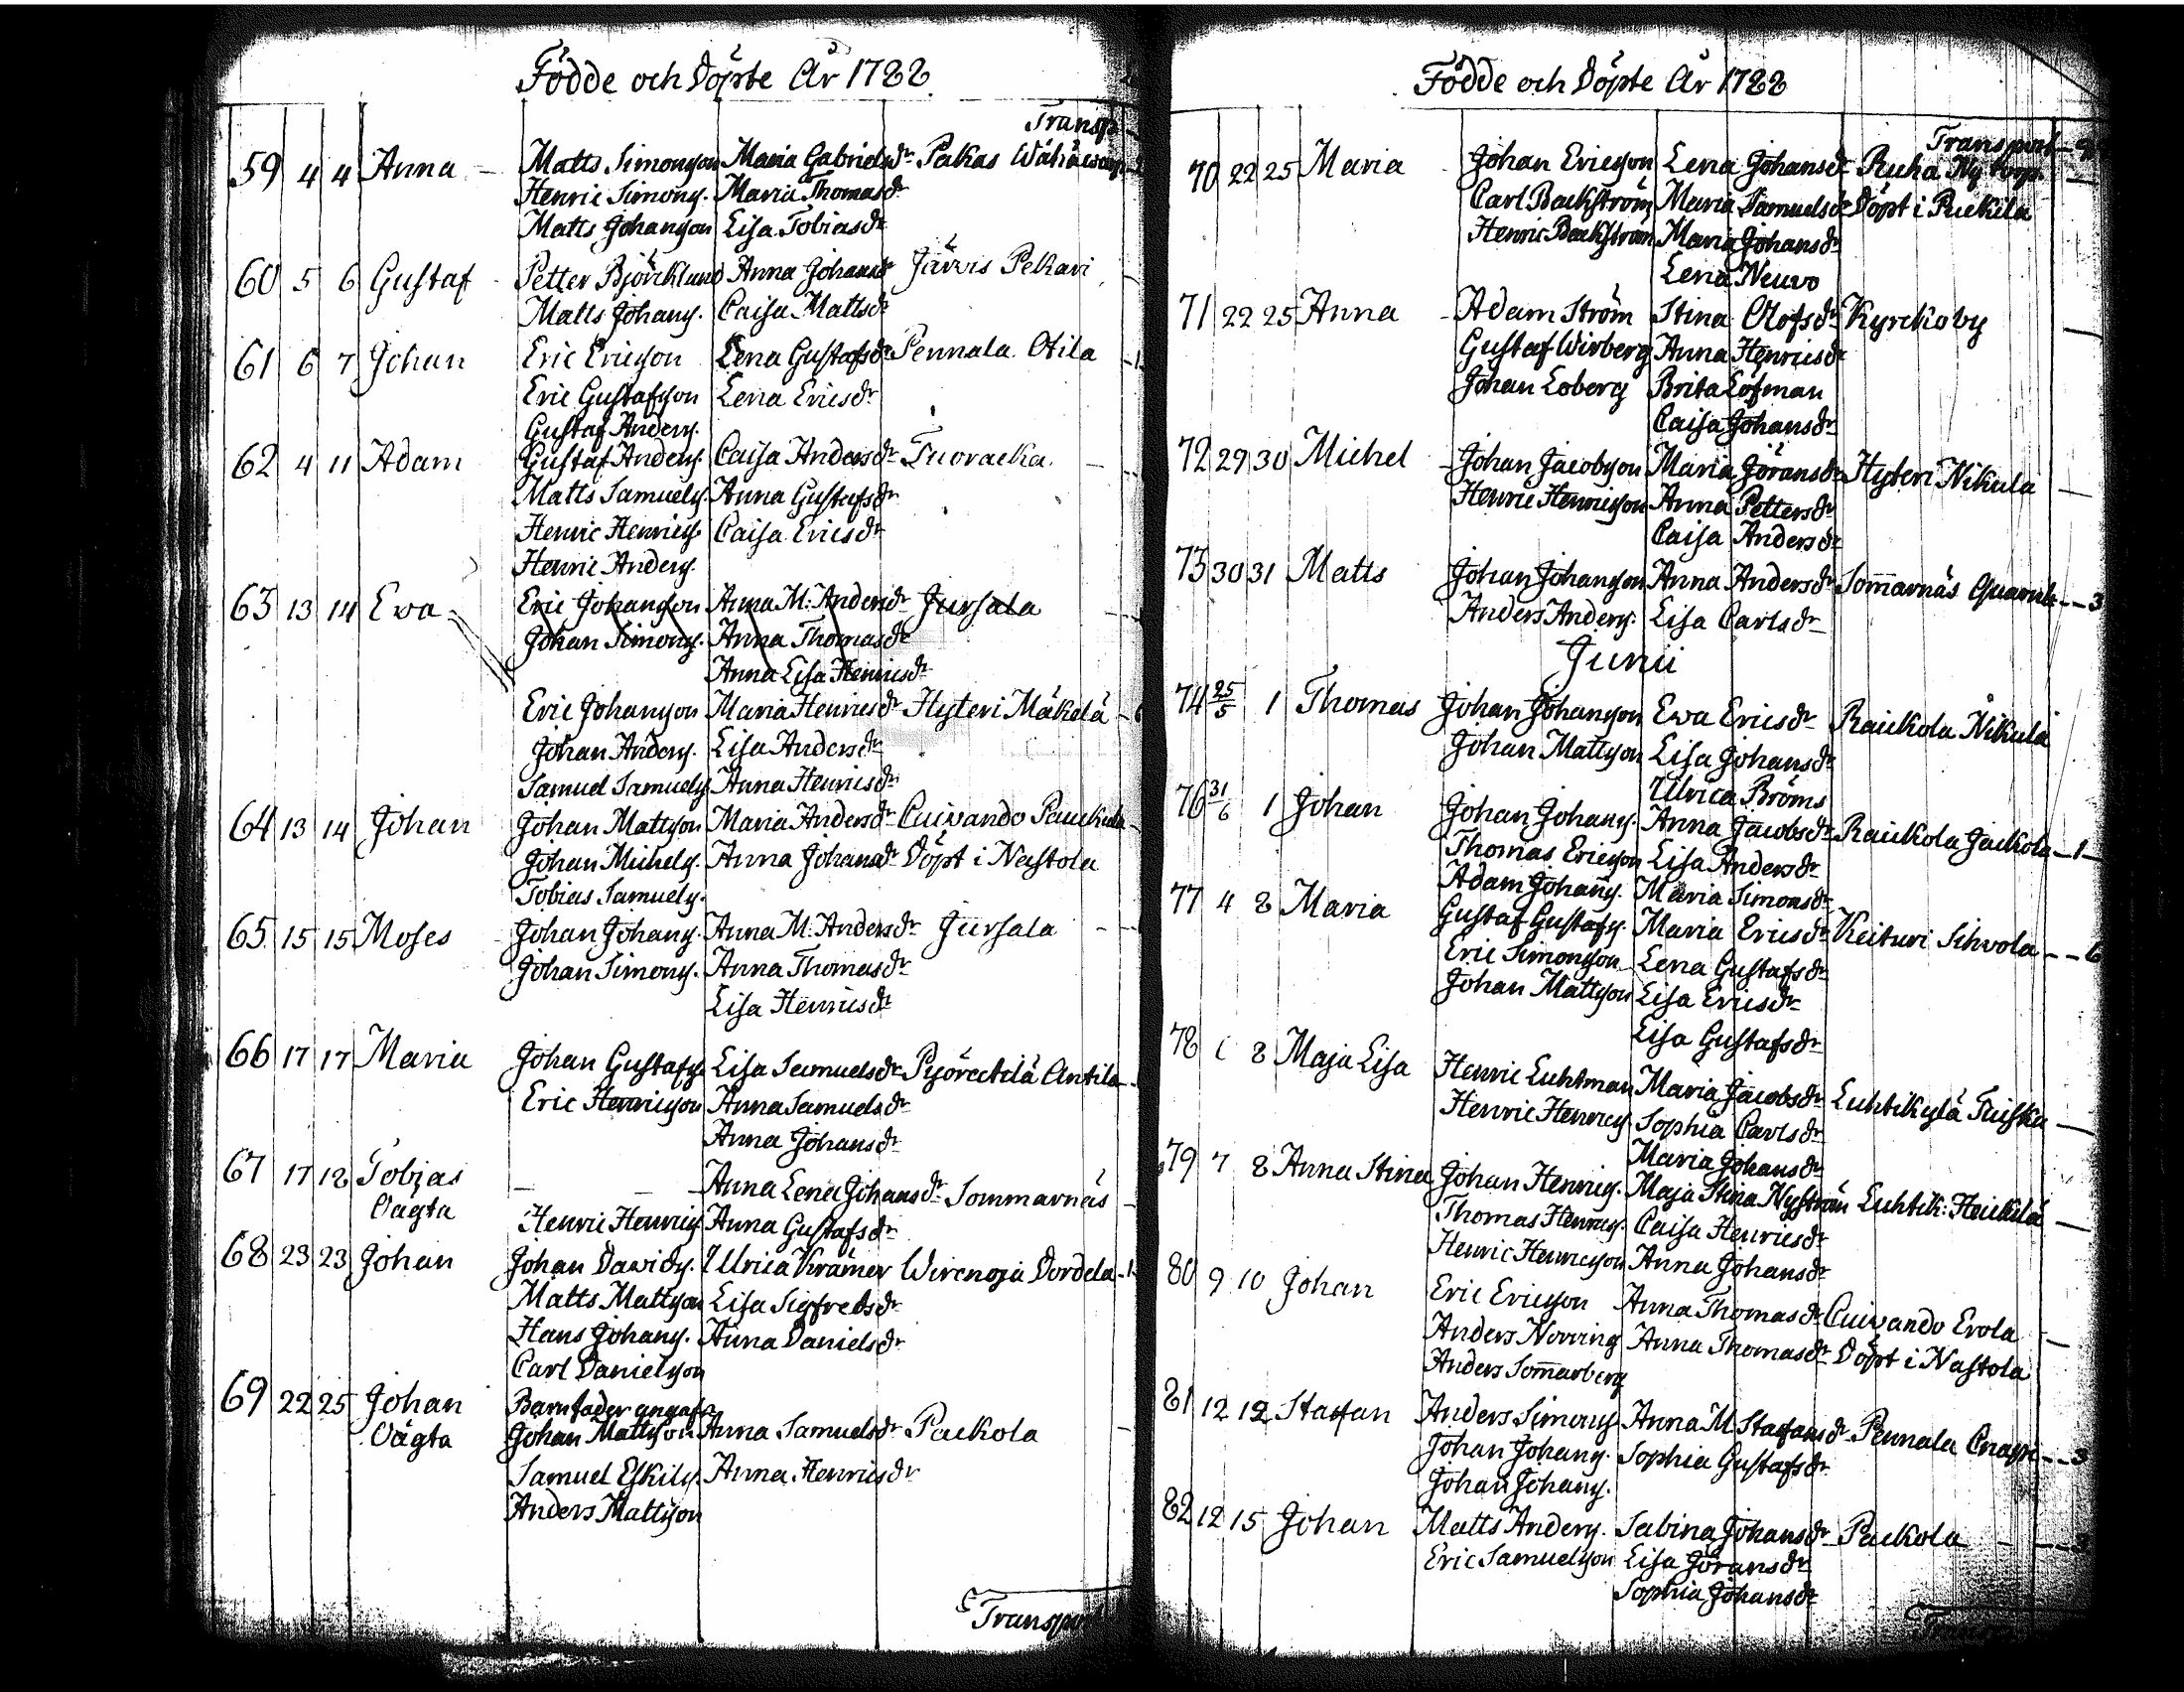 Födde och Döpte År 1788.
Transp
59 4 4 Anna Matts Simonsson Maria Gabrielsdr Pakas
Henric Simons. Maria Thomasdr
Matts Johansson Lisa Tobiasdr
60 5 6 Gustaf Petter Björklund Anna Johansdr Järvis Pekari
Matts Johans. Caisa Mattsdr
61 6 7 Johan Eric Ericsson Lena Gustafsdr Pennala Otila
Eric Gustafsson Lena Ericsdr
Gustaf Anders.
62 4 11 Adam Gustaf Anders. Caisa Andersdr Tuoracka
Matts Samuels. Anna Gustafsdr
Henric Henrics. Caisa Ericsdr
Henric Anders.
63 13 14 Ewa Eric Johansson Anna M: Andersdr Jursala
Johan Simons. Anna Thomasdr
Anna Lisa Henricsdr
Eric Johansson Maria Henricsdr Hyteri Mäkelä
Johan Anders. Lisa Andersdr
Samuel Samuels. Anna Henricsdr
64 13 14 Johan Johan Mattsson Maria Andersdr Cuivando
Johan Michels. Anna Johansdr Döpt i Nastola
Tobias Samuels.
65 15 15 Moses Johan Johans. Anna M: Andersdr Jursala
Johan Simons. Anna Thomasdr
Lisa Henricsdr
66 17 17 Maria Johan Gustafs. Lisa Samuelsdr Pyörectilä Antila
Eric Henricsson Anna Samuelsdr
Anna Johansdr
67 17 18 Tobias Anna Lena Johansdr Sommarnäs
Oägta Henric Henrics. Anna Gustafsdr
68 23 23 Johan Johan Davids. Ulrica Krämer Wirenoja Dordela 1
Matts Mattsson Lisa Sigfredsdr
Hans Johans. Anna Danielsdr
Carl Danielsson
69 22 25 Johan Barnfader angafs
Oägta Johan Mattsson Anna Samuelsdr Packola
Samuel Eskils. Anna Henricsdr
Anders Mattsson
Transport
Födde och Döpte År 1788
Transport
70 22 25 Maria Johan Ericsson Lena Johansdr Ruha Ny torp
Carl Backström Maria Samuelsdr Döpt i Puckila
Henric Backström Maria Johansdr
Lena Neuvo
71 22 25 Anna Adam Ström Stina Olofsdr Kyrckoby
Gustaf Wirberg Anna Henricsdr
Johan Loberg Brita Löfman
Caisa Johansdr
72 29 30 Michel Johan Jacobsson Maria Göransdr Hyteri Nikula
Henric Henricsson Anna Pettersdr
Caisa Andersdr
73 30 31 Matts Johan Johansson Anna Andersdr Som̄arnäs 3
Anders Anders. Lisa Carlsdr
Junii
74 25/5 1 Thomas Johan Johansson Ewa Ericsdr Raickola Nikula
Johan Mattsson Lisa Johansdr
Ulrica Broms
76 31/6 1 Johan Johan Johans. Anna Jacobsdr Raickola Jackola 1
Thomas Ericsson Lisa Andersdr
Adam Johans. Maria Simonsdr
77 4 8 Maria Gustaf Gustafs. Maria Ericsdr Keituri Sihvola 6
Eric Simonsson Lena Gustafsdr
Johan Mattsson Lisa Ericsdr
Lisa Gustafsdr
78 8 Maja Lisa Henric Luhtman Maria Jacobsdr Luhtikylä Tuiska
Henric Henrics. Sophia Carlsdr
Maria Johansdr
79 7 8 Anna Stina Johan Henrics. Maja Stina Nyström Luhtik: Heickilä
Thomas Henrics. Caisa Henricsdr
Henric Henricsson Anna Johansdr
80 9 10 Johan Eric Ericsson Anna Thomasdr Cuivando Erola
Anders Norring Anna Thomasdr Döpt i Nastola
Anders Som̄arberg
81 12 12 Staffan Anders Simons. Anna M Staffansdr Pennala 3
Johan Johans. Sophia Gustafsdr
Johan Johans.
82 12 15 Johan Matts Anders. Sabina Johansdr Packola
Eric Samuelsson Lisa Göransdr
Sophia Johansdr